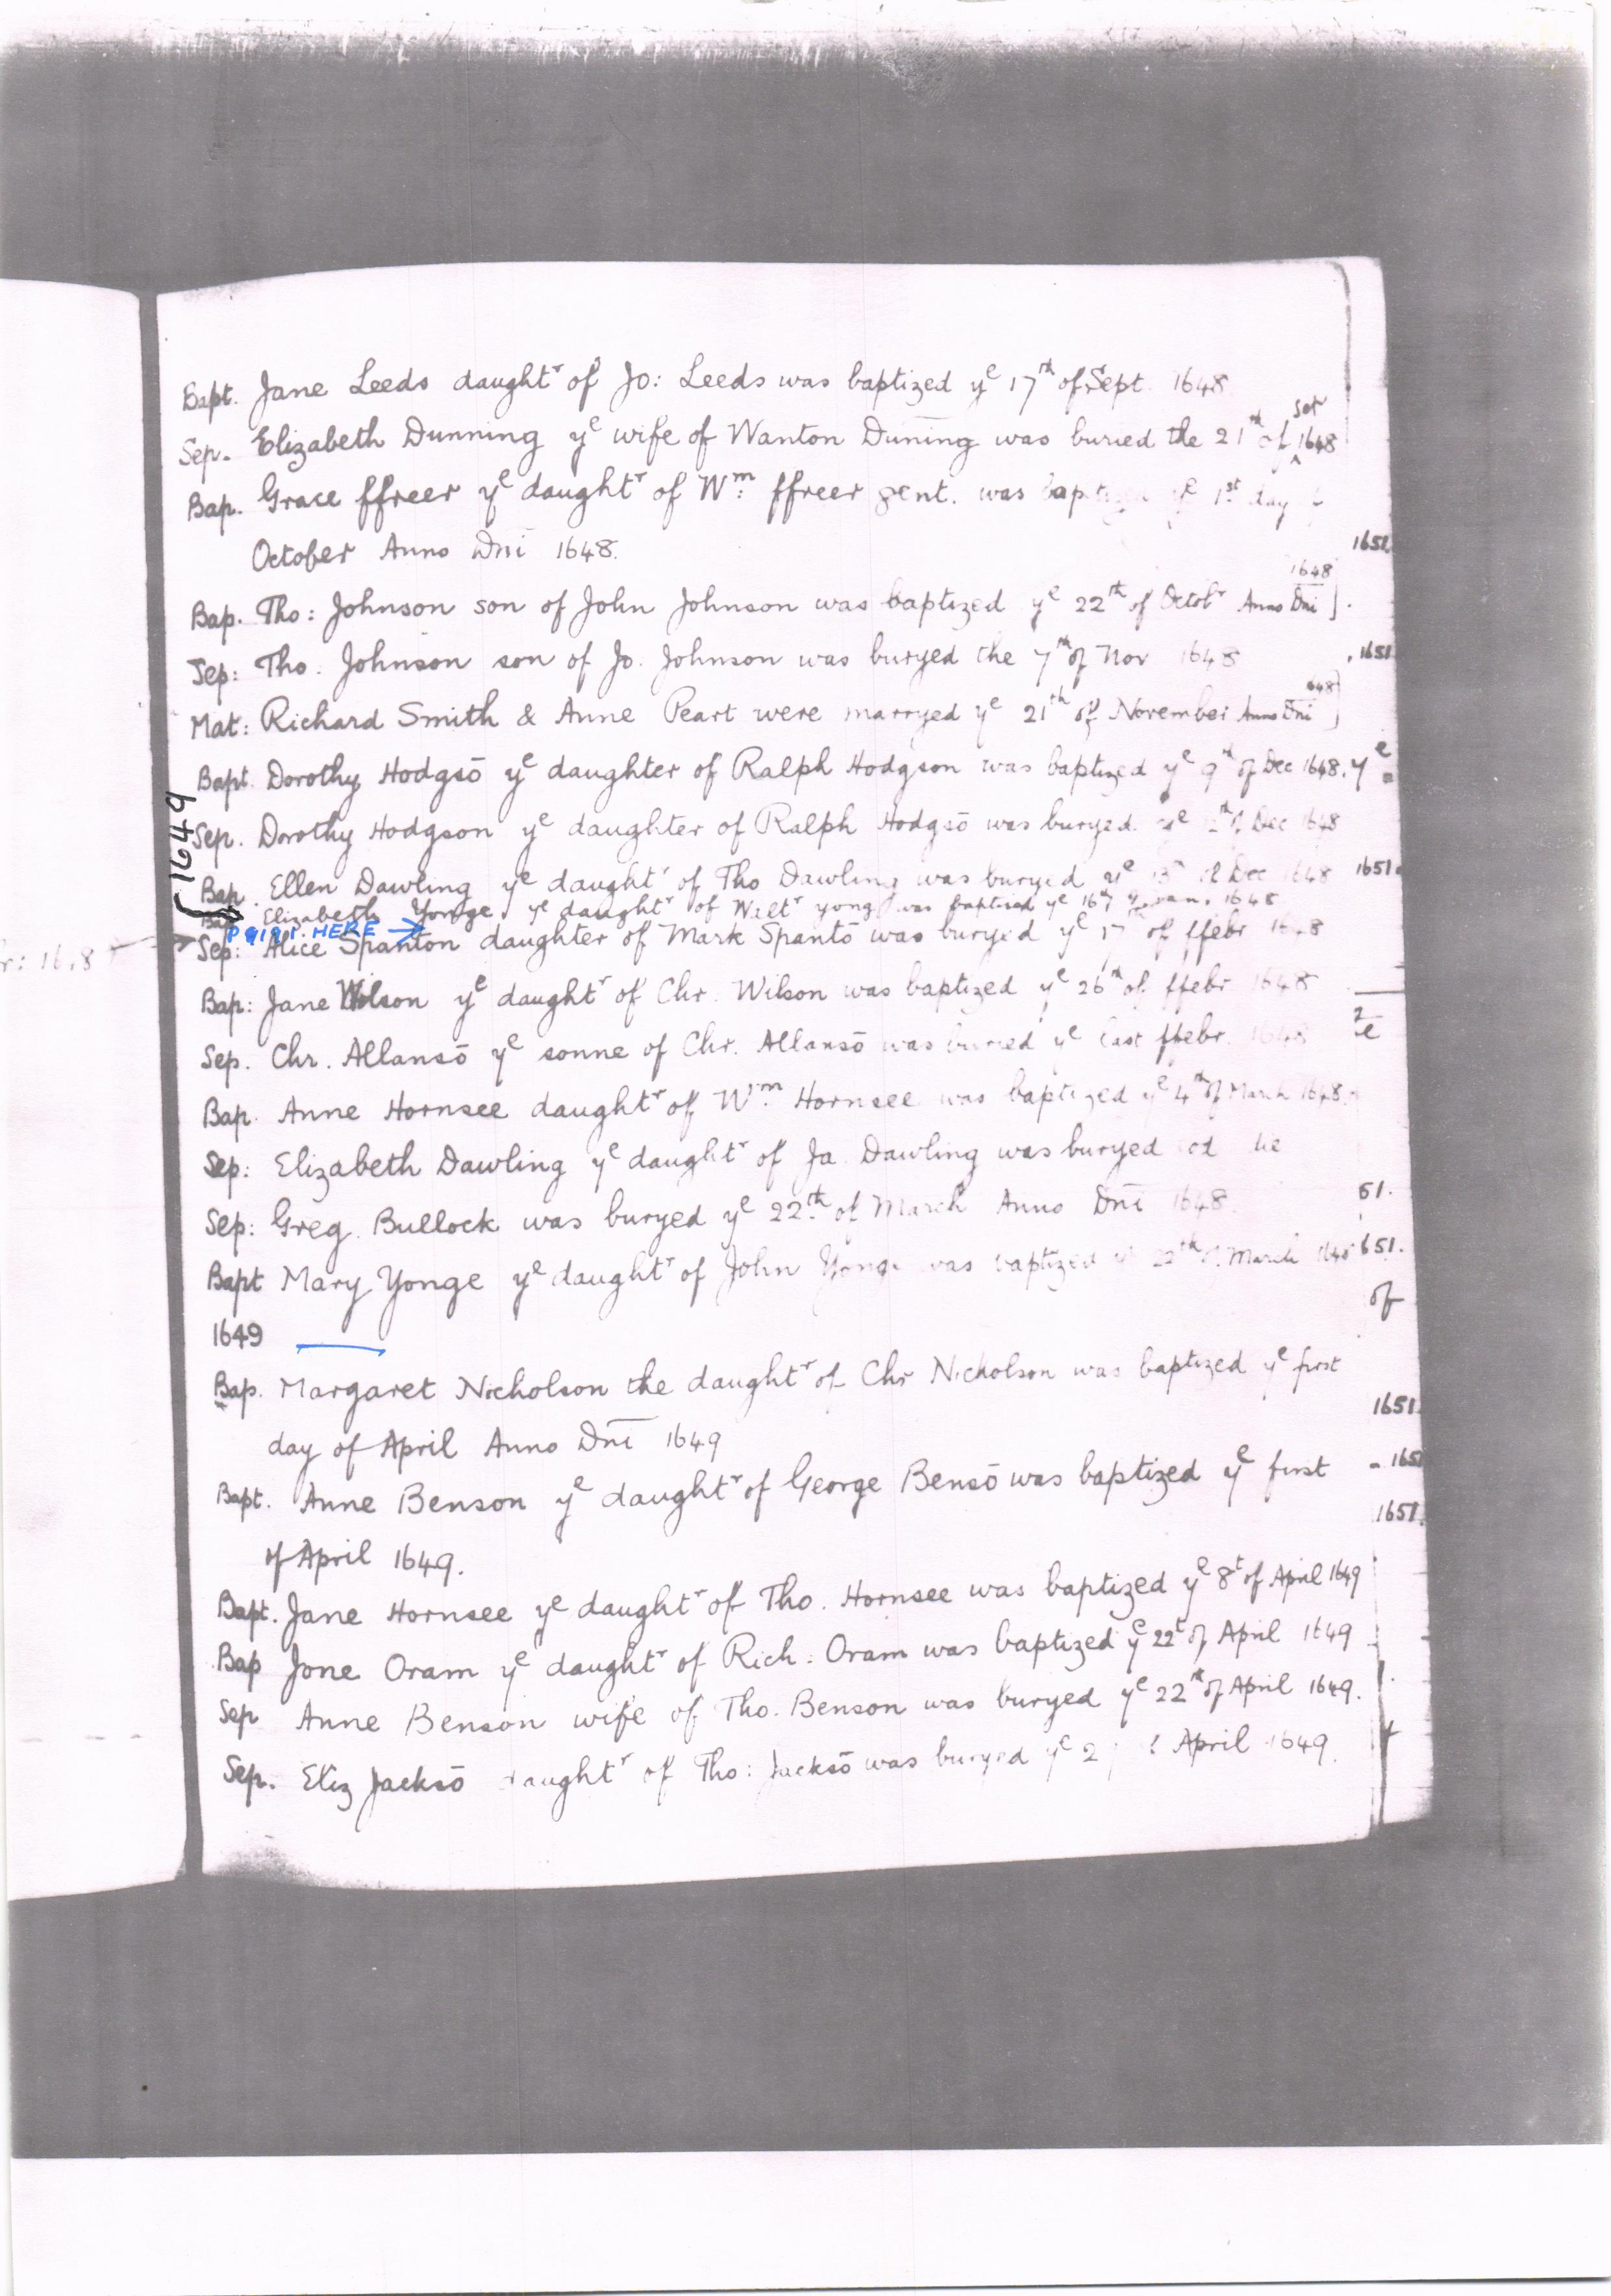 Bapt. Jane Leeds daughtr of Jo: Leeds was baptized ye 17th of Sept. 1648
Sep. Elizabeth Dunning ye wife of Wanton Duning was buried the 21th of Set 1648
Bap. Grace ffreer ye daughtr of Wm: ffreer gent. was ye 1st day
October Anno Dni 1648.
1651
Bap. Tho: Johnson son of John Johnson was baptized ye 22th of Octobr Anno Dni 1648
Sep: Tho. Johnson son of Jo. Johnson was buryed the 7th of Nov 1648
1651
Mat: Richard Smith & Anne Peart were marryed ye 21th of November Anno Dni 648
Bapt. Dorothy Hodgsō ye daughter of Ralph Hodgson was baptized ye 9th of Dec 1648. ye
1649
Sep. Dorothy Hodgson ye daughter of Ralph Hodgsō was buryed. ye of Dec 1648
Bap. Ellen Dawling ye daughtr of Tho Dawling was buryed ye Dec 1648 1651
Bap Elizabeth Yonge ye daughtr of yong was baptised ye 16th 1648
HERE →
Sep: Alice Spanton daughter of Mark Spantō was buryed ye 17th of ffebr
Bap: Jane Wilson ye daughtr of Chr. Wilson was baptized ye 26th of ffebr 1648
Sep. Chr. Allansō ye sonne of Chr. Allansō was buried ye last ffebr. 1648
Bap. Anne Hornsee daughtr of Wm: Hornsee was baptized ye 4th of March 1648.
Sep: Elizabeth Dawling ye daughtr of Ja. Dawling was buryed
Sep: Greg. Bullock was buryed ye 22th of March Anno Dni 1648.
51.
Bapt Mary Yonge ye daughtr of John Yonge was baptized 22th of March
651.
of
1649
Bap. Margaret Nicholson the daughtr of Chr Nicholson was baptized ye first
1651
day of April Anno Dni 1649
Bapt. Anne Benson ye daughtr of George Bensō was baptized ye first
1651.
of April 1649.
Bapt. Jane Hornsee ye daughtr of Tho. Hornsee was baptized ye 8t of April 1649
Bap Jone Oram ye daughtr of Rich: Oram was baptized ye 22t of April 1649
Sep Anne Benson wife of Tho. Benson was buryed ye 22th of April 1649.
Sep. Eliz Jacksō daughtr of Tho: Jacksō was buryed ye 2 April 1649.